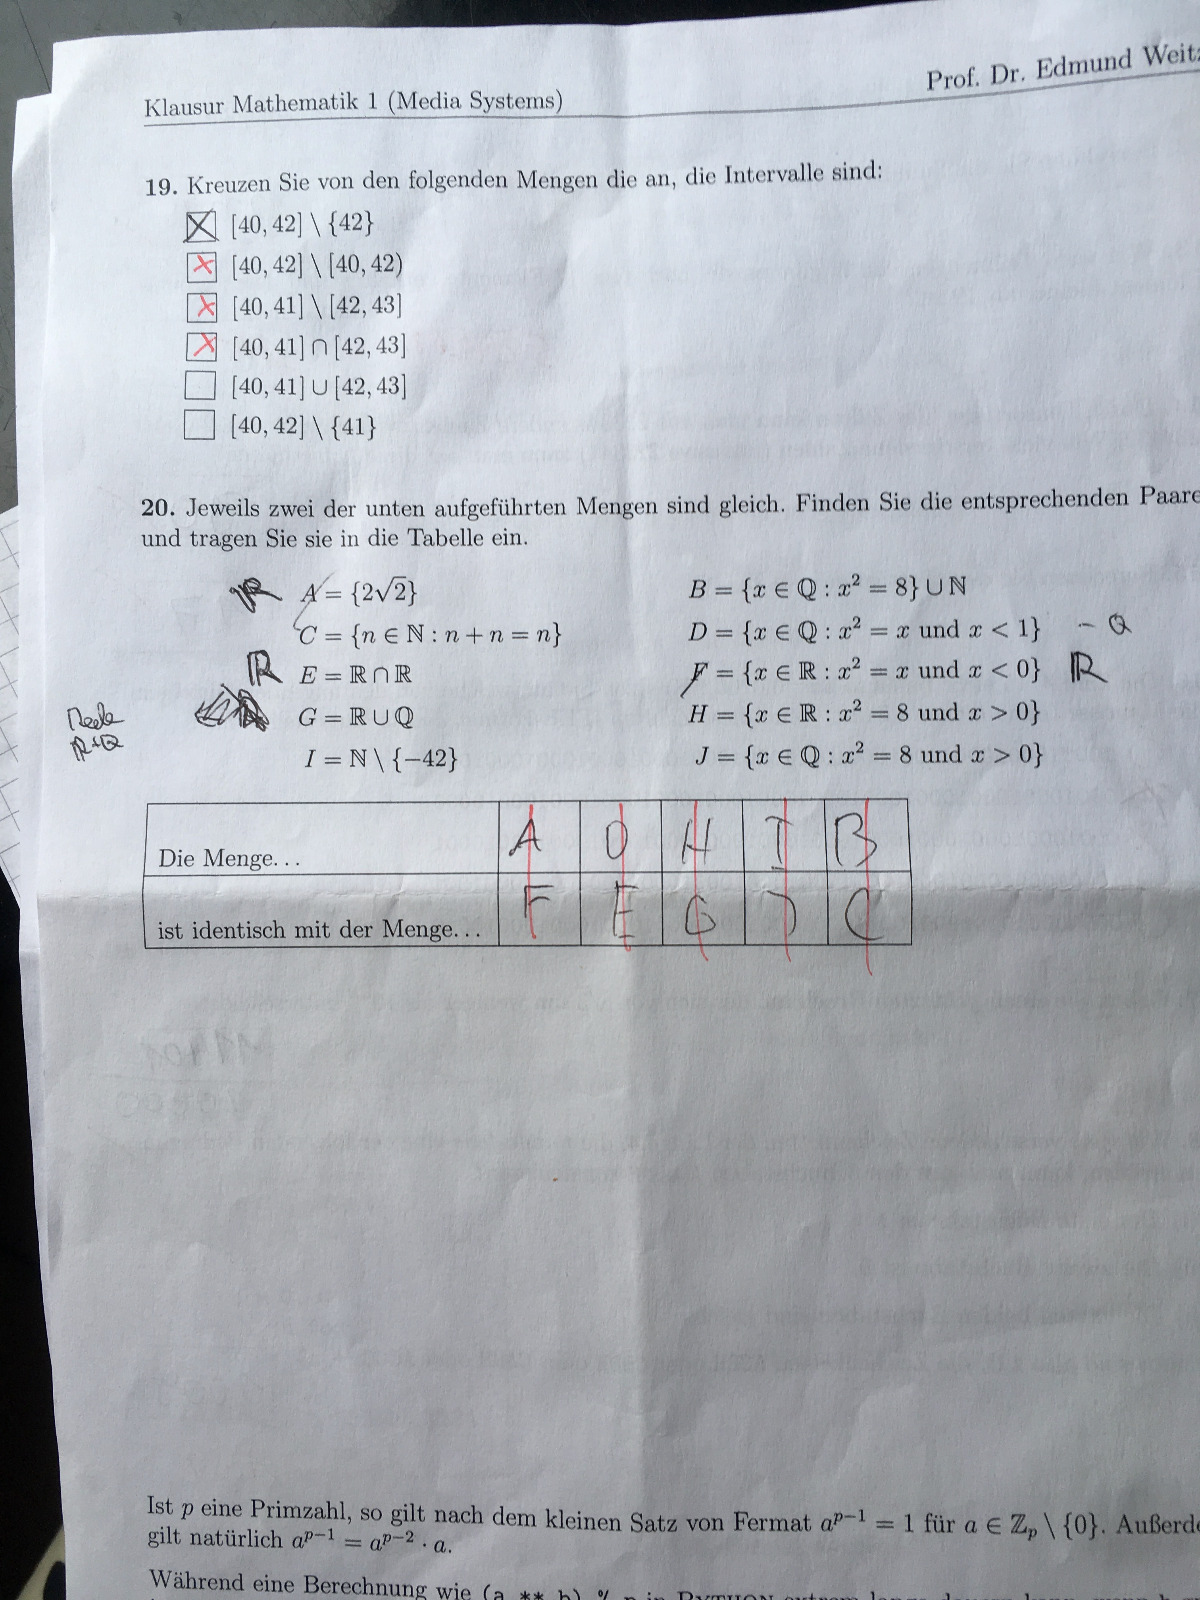 Klausur Mathematik 1 (Media Systems) Prof. Dr. Edmund Weitz
19. Kreuzen Sie von den folgenden Mengen die an, die Intervalle sind:
[40, 42] \ {42}
[40, 42] \ [40, 42)
[40, 41] \ [42, 43]
[40, 41] ∩ [42, 43]
[40, 41] ∪ [42, 43]
[40, 42] \ {41}
20. Jeweils zwei der unten aufgeführten Mengen sind gleich. Finden Sie die entsprechenden Paare
und tragen Sie sie in die Tabelle ein.
ℝ A = {2√2} B = {x ∈ ℚ : x² = 8} ∪ ℕ
C = {n ∈ ℕ : n + n = n} D = {x ∈ ℚ : x² = x und x < 1} - Q
ℝ E = ℝ ∩ ℝ F = {x ∈ ℝ : x² = x und x < 0} ℝ
G = ℝ ∪ ℚ H = {x ∈ ℝ : x² = 8 und x > 0}
I = ℕ \ {−42} J = {x ∈ ℚ : x² = 8 und x > 0}
Die Menge... A D H I B
ist identisch mit der Menge... F E G J C
Ist p eine Primzahl, so gilt nach dem kleinen Satz von Fermat aᵖ⁻¹ = 1 für a ∈ ℤₚ \ {0}. Außerde
gilt natürlich aᵖ⁻¹ = aᵖ⁻² · a.
Während eine Berechnung wie (a ** b) % p in PYTHON extrem lange dauern kann, wenn b